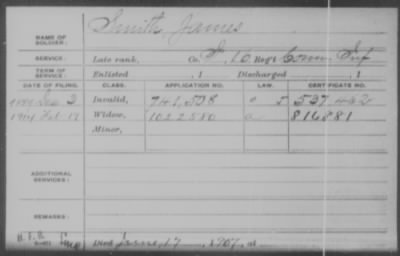 NAME OF SOLDIER: Smith, James
SERVICE: Late rank, Co. 10 Reg't Conn. Inf
TERM OF SERVICE: Enlisted , 1 Discharged , 1
DATE OF FILING. CLASS. APPLICATION NO. LAW. CERTIFICATE NO.
3 Invalid, 741,538 537,452
1914 Feb 17 Widow, 1022580 a 816881
Minor,
ADDITIONAL SERVICES:
REMARKS:
Died 1907, at